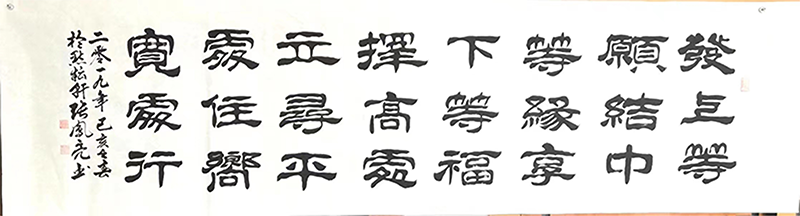 發上等
願結中
等緣享
下等福
擇高處
立尋平
處住嚮
寬處行
二零一九年己亥之春
於 軒張鳳亮書